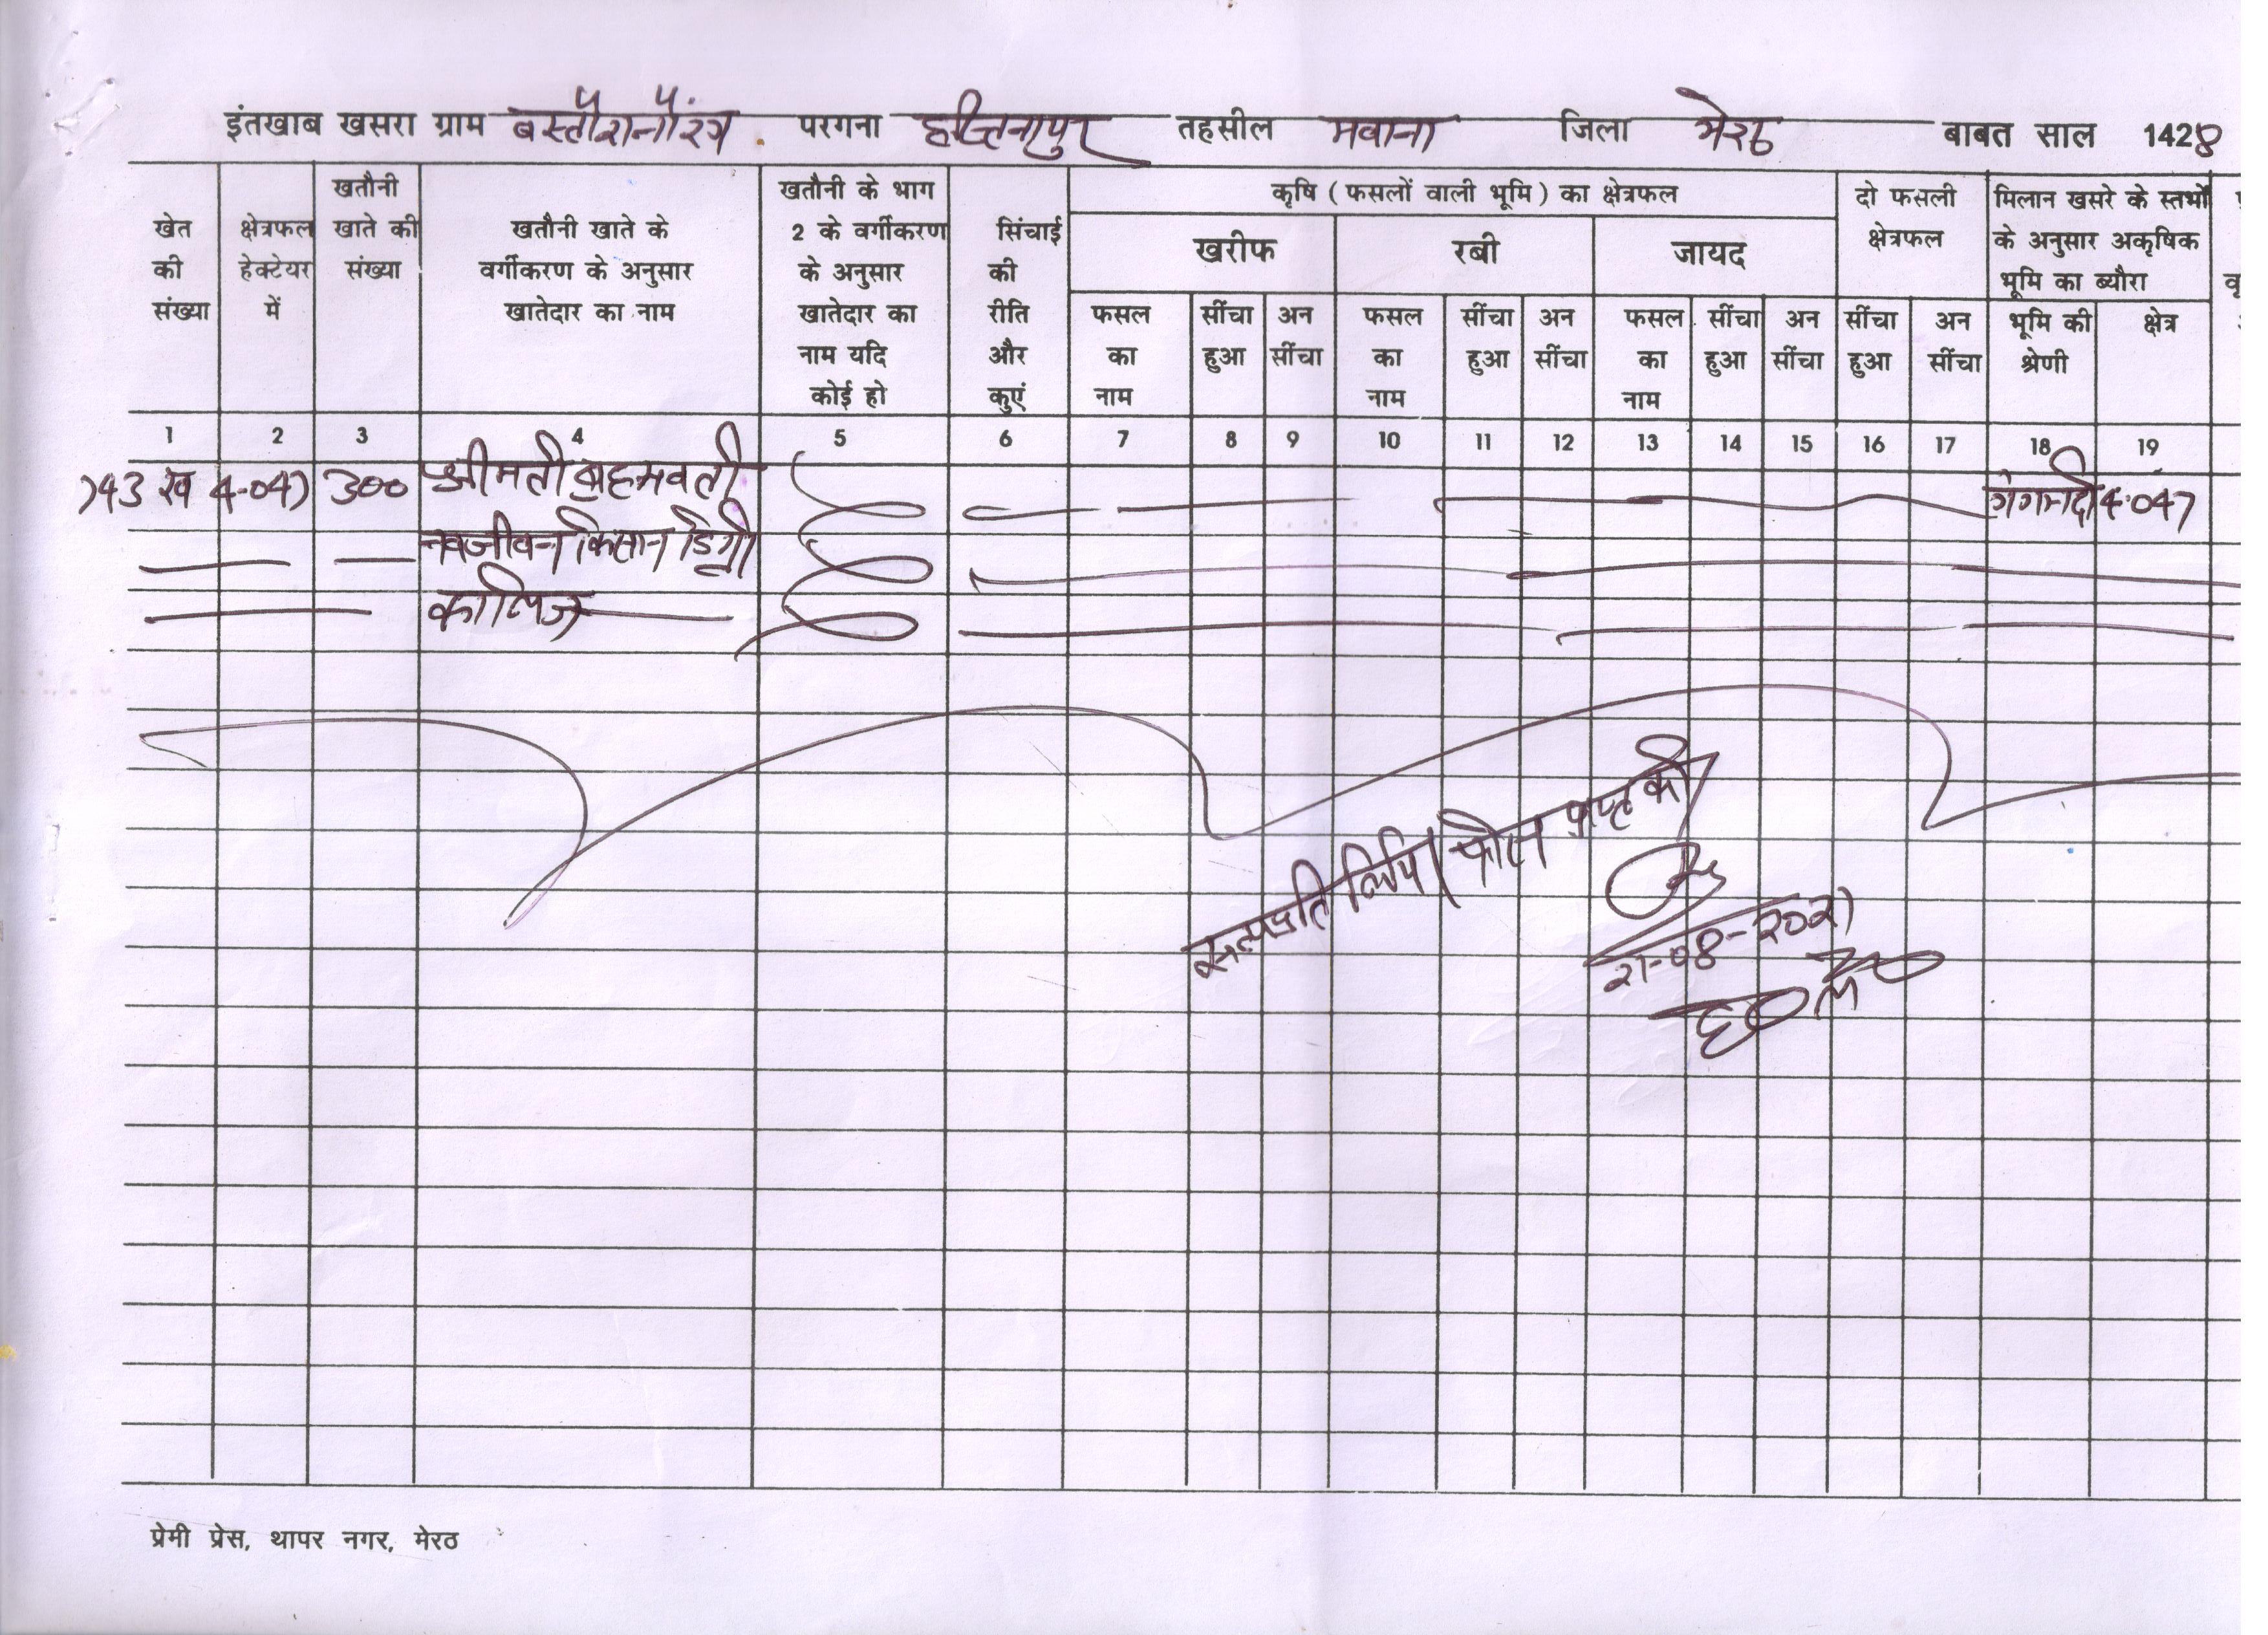 इंतखाब खसरा ग्राम बस्तौरानौरंग परगना हस्तिनापुर तहसील मवाना जिला मेरठ बाबत साल 1428
खेत की संख्या क्षेत्रफल हेक्टेयर में खतौनी खाते की संख्या खतौनी खाते के वर्गीकरण के अनुसार खातेदार का नाम खतौनी के भाग 2 के वर्गीकरण के अनुसार खातेदार का नाम यदि कोई हो सिंचाई की रीति और कुएं
कृषि ( फसलों वाली भूमि ) का क्षेत्रफल
दो फसली क्षेत्रफल
मिलान खसरे के स्तभों के अनुसार अकृषिक भूमि का ब्यौरा
खरीफ रबी जायद
फसल का नाम सींचा हुआ अन सींचा फसल का नाम सींचा हुआ अन सींचा फसल का नाम सींचा हुआ अन सींचा सींचा हुआ अन सींचा भूमि की श्रेणी क्षेत्र
1 2 3 4 5 6 7 8 9 10 11 12 13 14 15 16 17 18 19
143 ख 4-047 300 श्रीमती ब्रहमवती 4.047
नवजीवन किसान डिग्री
कालिज
सत्यप्रतिलिपि
प्राप्त की
21-08-2021
प्रेमी प्रेस, थापर नगर, मेरठ